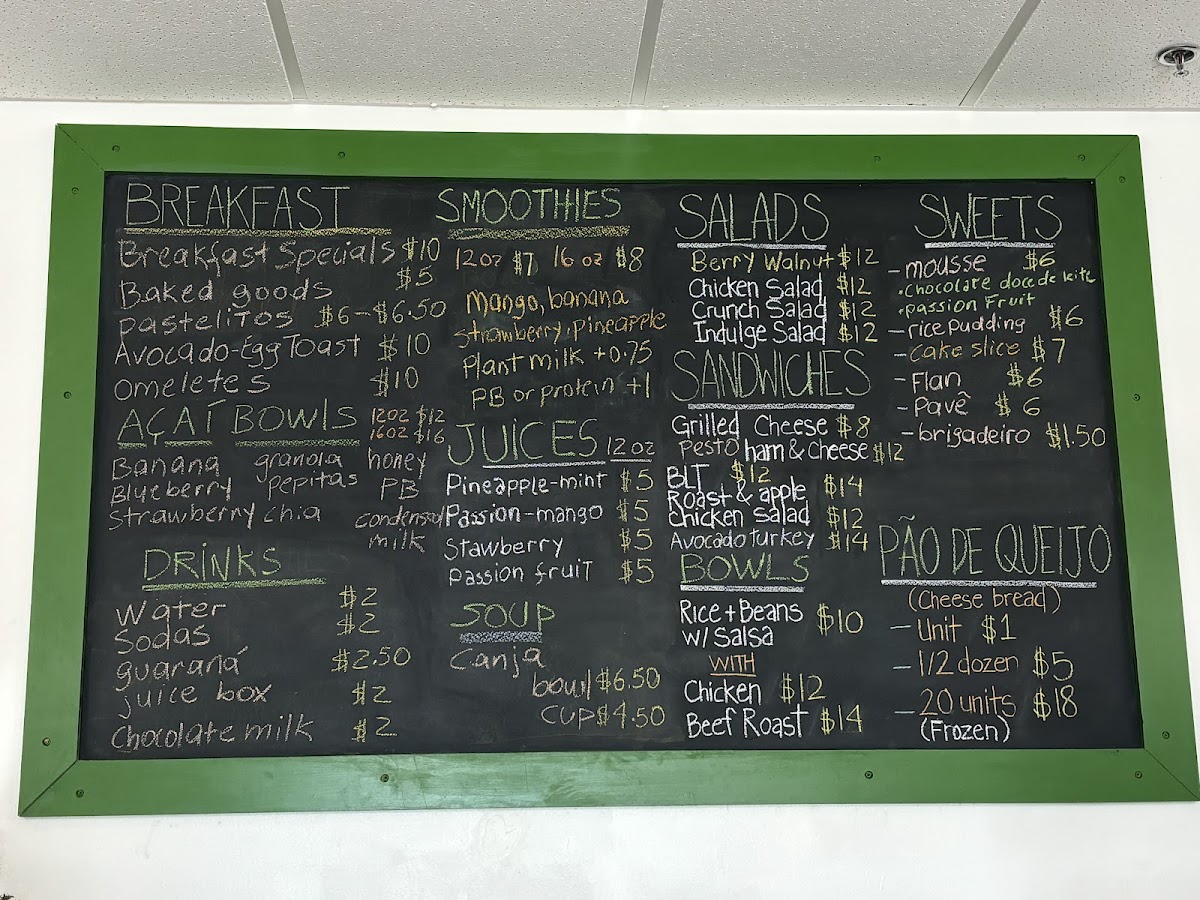 BREAKFAST
Breakfast Specials $10
Baked goods $5
pastelitos $6-$6.50
Avocado-Egg Toast $10
omeletes $10
AÇAÍ BOWLS 12oz $12
16oz $16
Banana granola honey
Blueberry pepitas PB
strawberry chia condensed
milk
DRINKS
Water $2
Sodas $2
guaraná $2.50
juice box $2
Chocolate milk $2
SMOOTHIES
12oz $7 16oz $8
Mango, banana
strawberry, pineapple
Plant milk +0.75
PB or protein +1
JUICES 12oz
Pineapple-mint $5
Passion-mango $5
Stawberry $5
passion fruit $5
SOUP
Canja
bowl $6.50
cup $4.50
SALADS
Berry Walnut $12
Chicken Salad $12
Crunch Salad $12
Indulge Salad $12
SANDWICHES
Grilled Cheese $8
Pesto ham & Cheese $12
BLT $12
Roast & apple $14
Chicken Salad $12
Avocado turkey $14
BOWLS
Rice + Beans $10
w/ Salsa
WITH
Chicken $12
Beef Roast $14
SWEETS
- mousse $6
• chocolate doce de leite
• passion Fruit
- rice pudding $6
- cake slice $7
- Flan $6
- Pavê $6
- brigadeiro $1.50
PÃO DE QUEIJO
(Cheese bread)
- Unit $1
- 1/2 dozen $5
- 20 units $18
(Frozen)